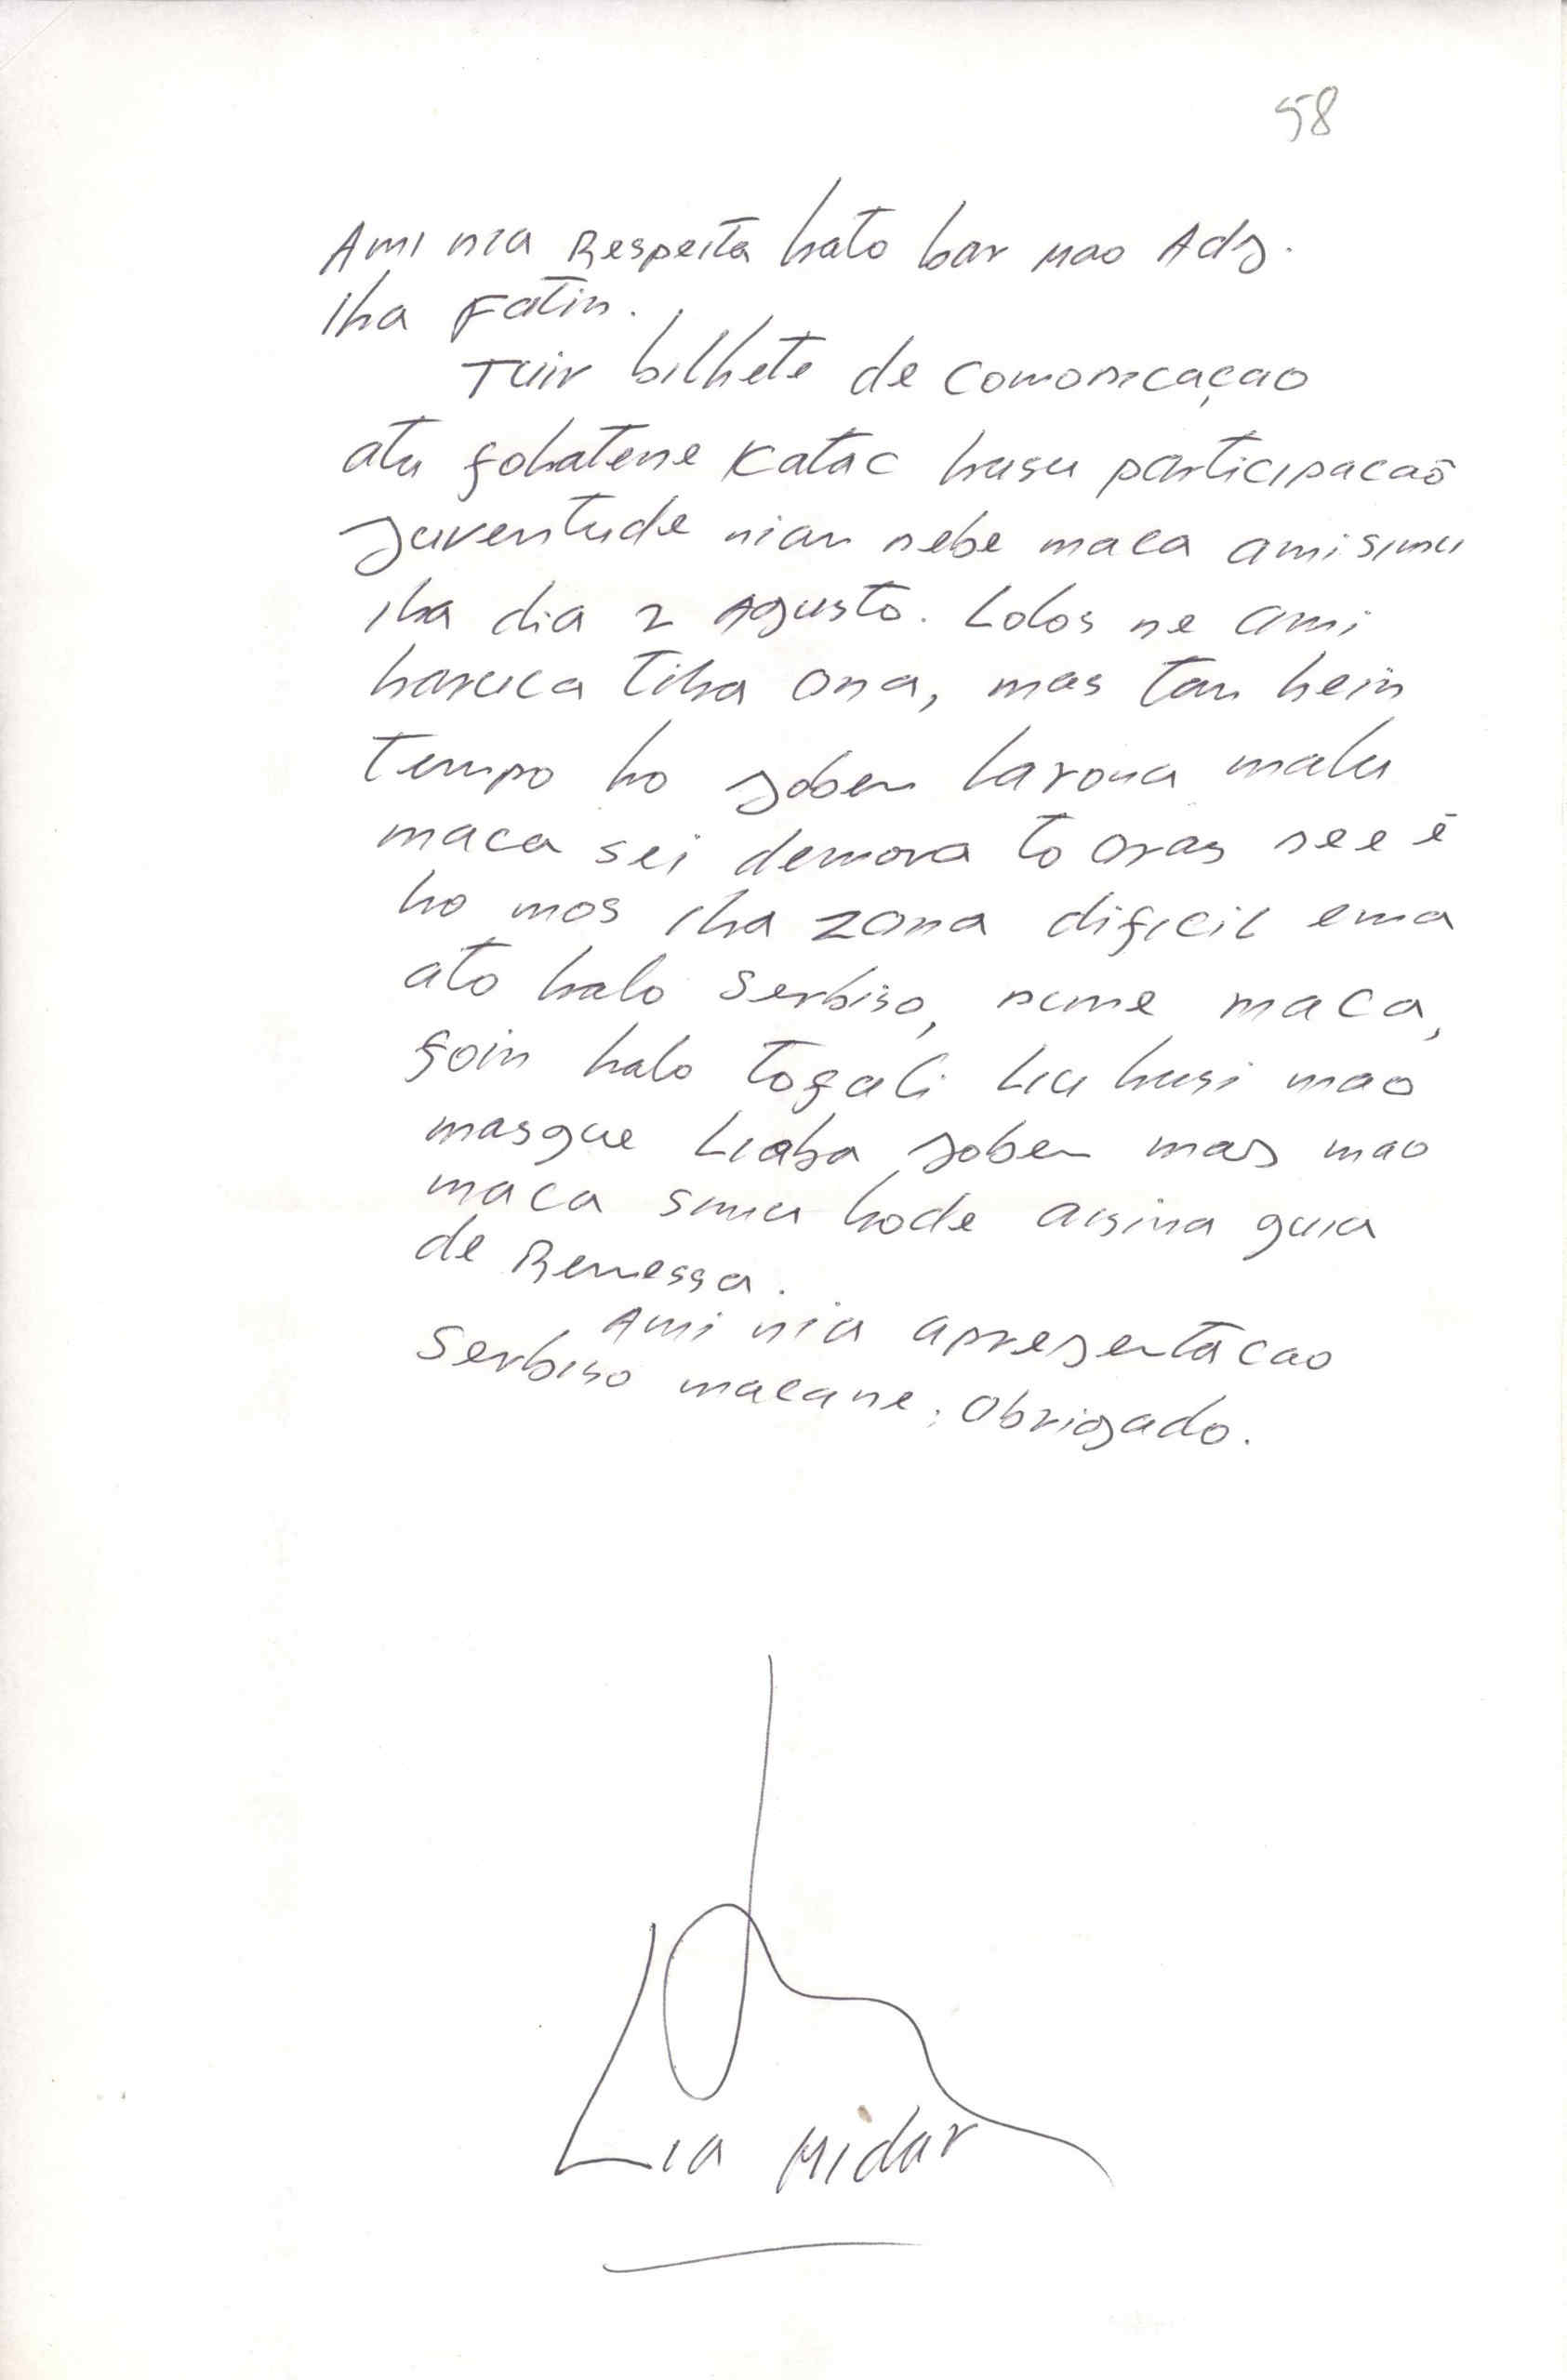 58
Ami nia Respeita hato bar mao Adj.
iha Fatin.
Tuir bilhete de comonicaçao
atu fohatene Katac husu participacaõ
Juventude nian nebe maca ami simu
iha dia 2 Agusto. Lolos ne ami
haruca tiha ona, mas tan hein
tempo ho joben la rona malu
maca sei demora to oras nee é
ho mos iha zona dificil ema
ato halo serbiso, nune maca,
foin halo to fali liu husi mao
masque liaba joben mas mao
maca simu hode asina guia
de Remessa.
Ami nia apresentacao
Serbiso macane; Obrigado.
Lia Midar